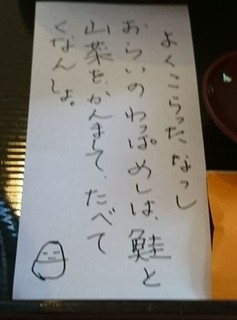 よくこらったなっし
おらいのわっぱめしは、鮭と
山菜をかんまして、たべて
くなんしょ。